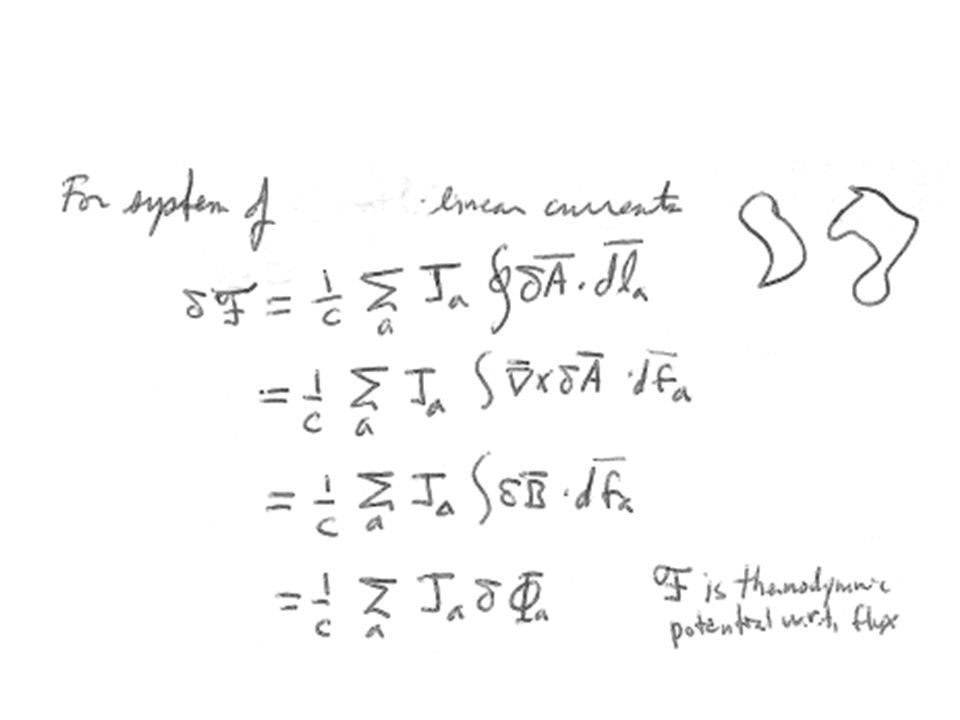 For system of linear currents
δℱ = 1/c Σ_a J_a ∮ δA̅ · dl̅_a
= 1/c Σ_a J_a ∫ ∇̅ × δA̅ · df̅_a
= 1/c Σ_a J_a ∫ δB̅ · df̅_a
= 1/c Σ_a J_a δΦ_a
ℱ is thermodynamic
potential w.r.t. flux